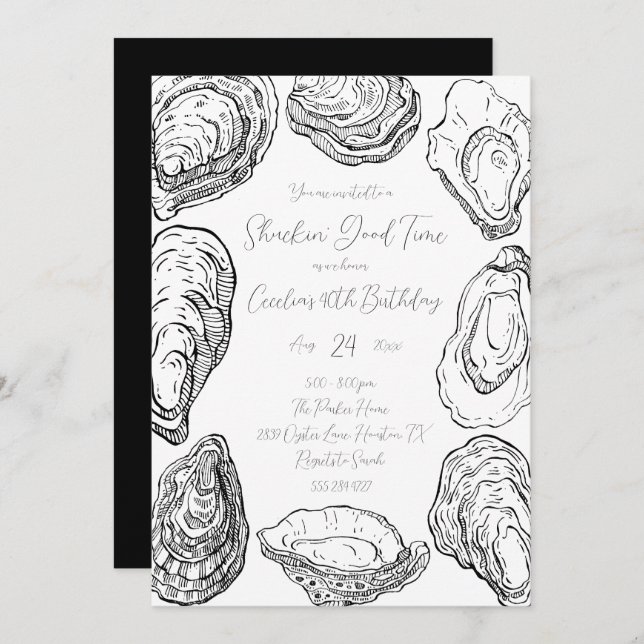 You are invited to a
Shuckin' Good Time
as we honor
Cecelia's 40th Birthday
Aug 24 20xx
5:00 - 8:00pm
The Parker Home
2839 Oyster Lane Houston TX
Regrets to Sarah
555 284 4727